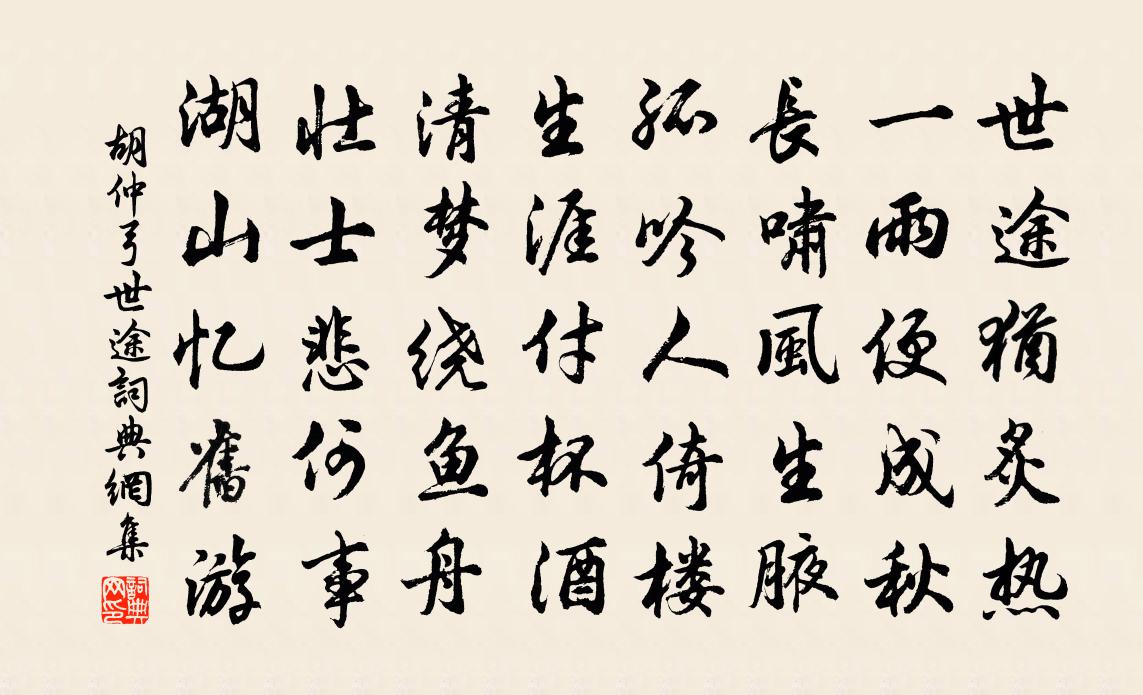 世途猶炙热
一雨便成秋
長嘯風生腋
孤吟人倚楼
生涯付杯酒
清梦绕鱼舟
壮士悲何事
湖山忆舊游
胡仲弓世途詞典網集
詞典
网印